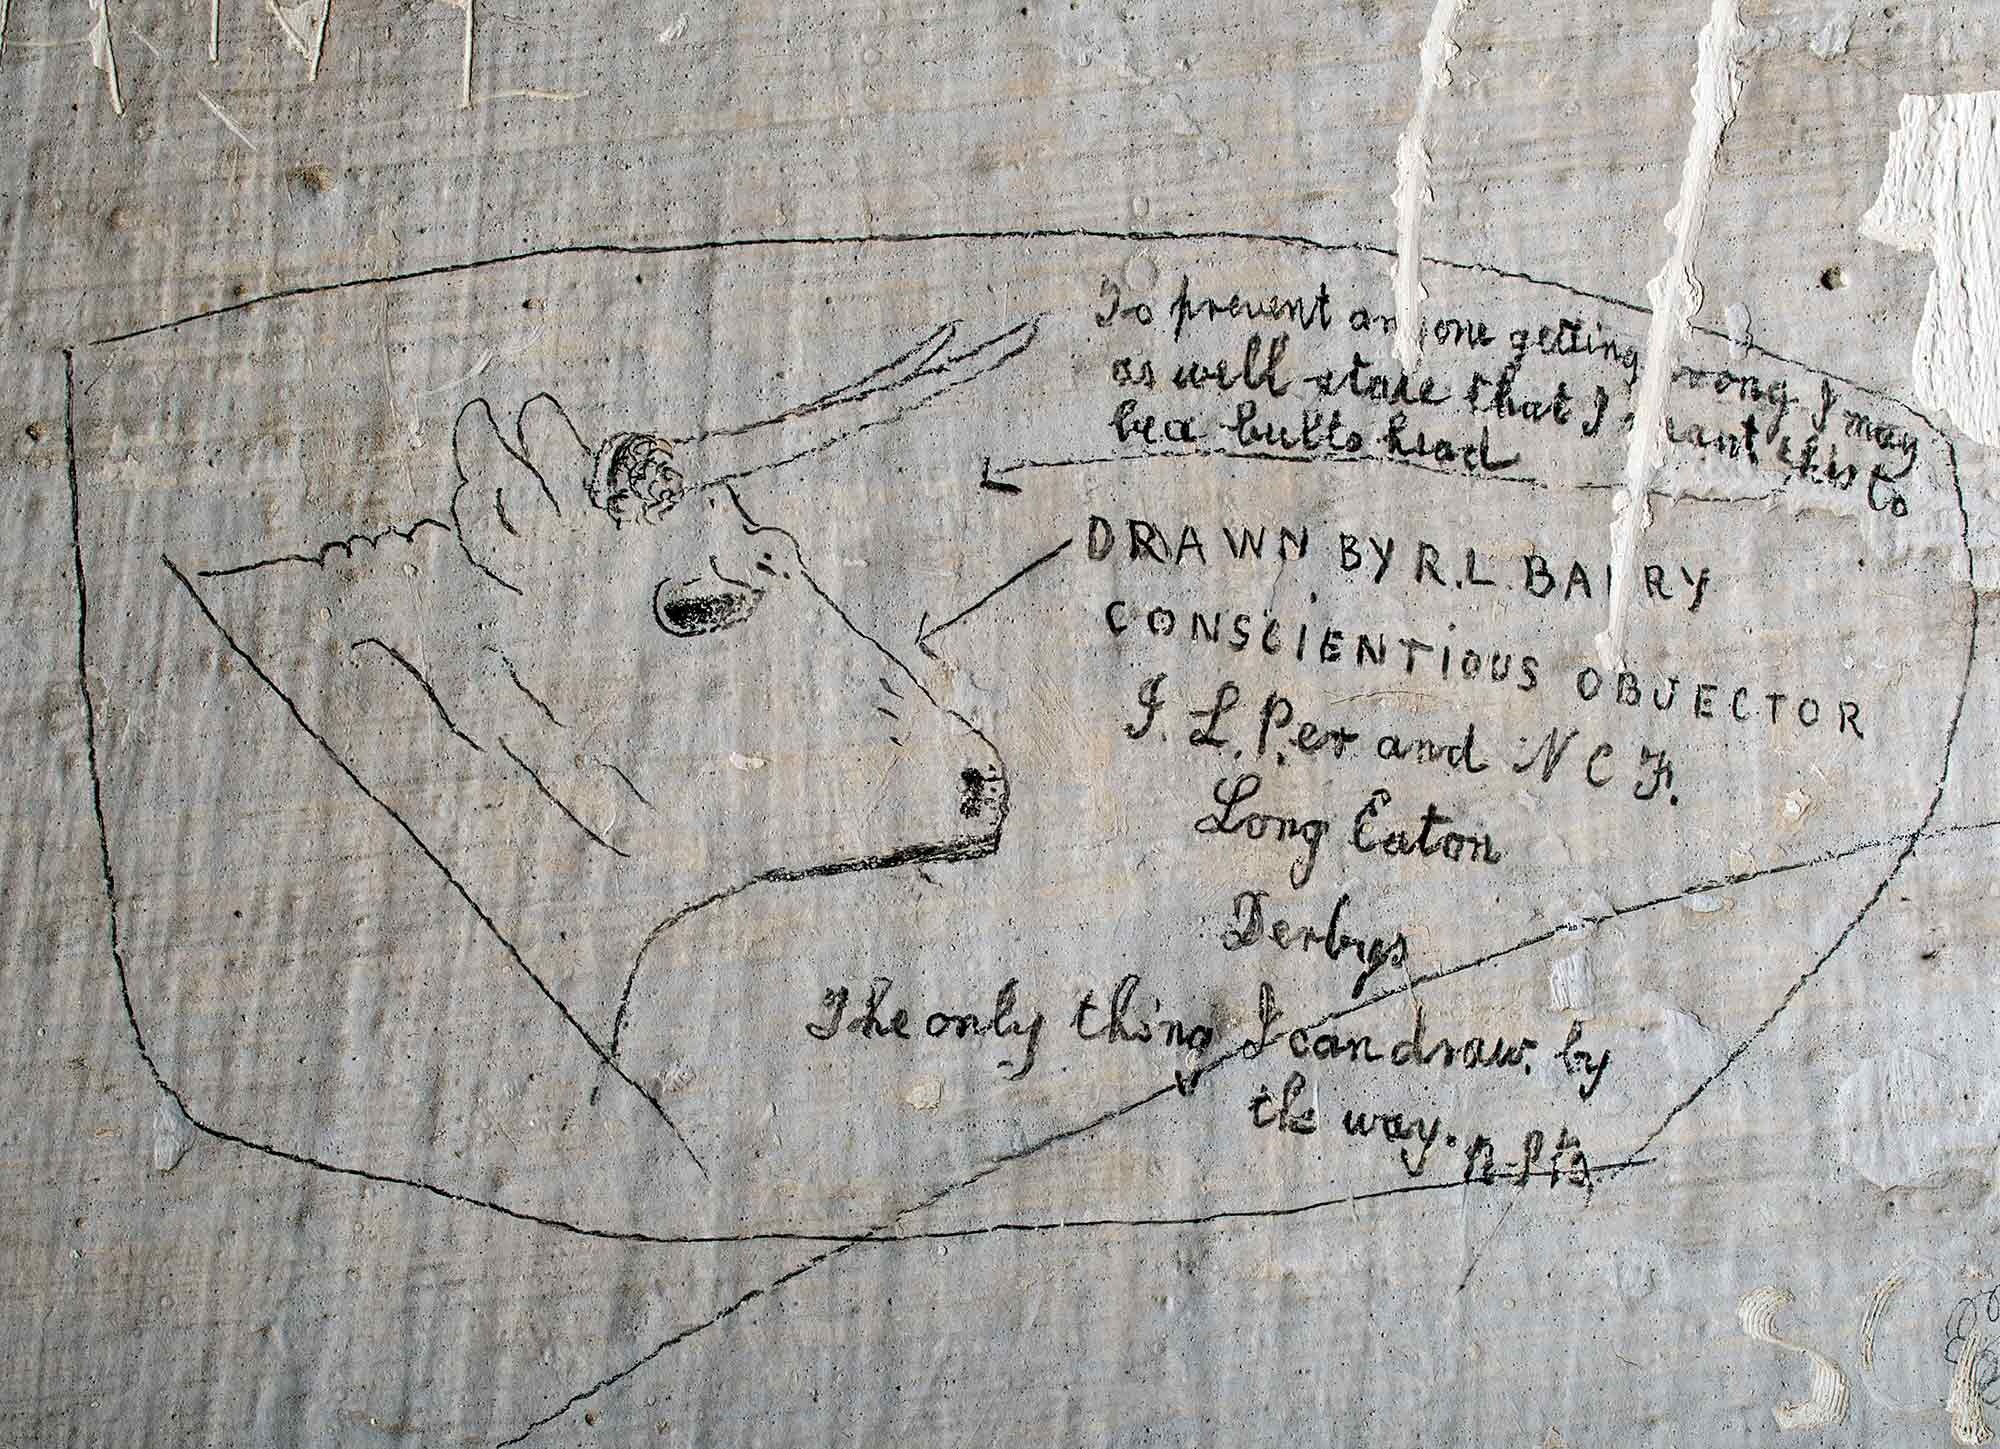 To prevent anyone getting wrong I may
as well state that I meant this to
be a bulls head
DRAWN BY R.L. BARRY
CONSCIENTIOUS OBJECTOR
I. L. P.er and N C F.
Long Eaton
Derbys
The only thing I can draw. by
the way.